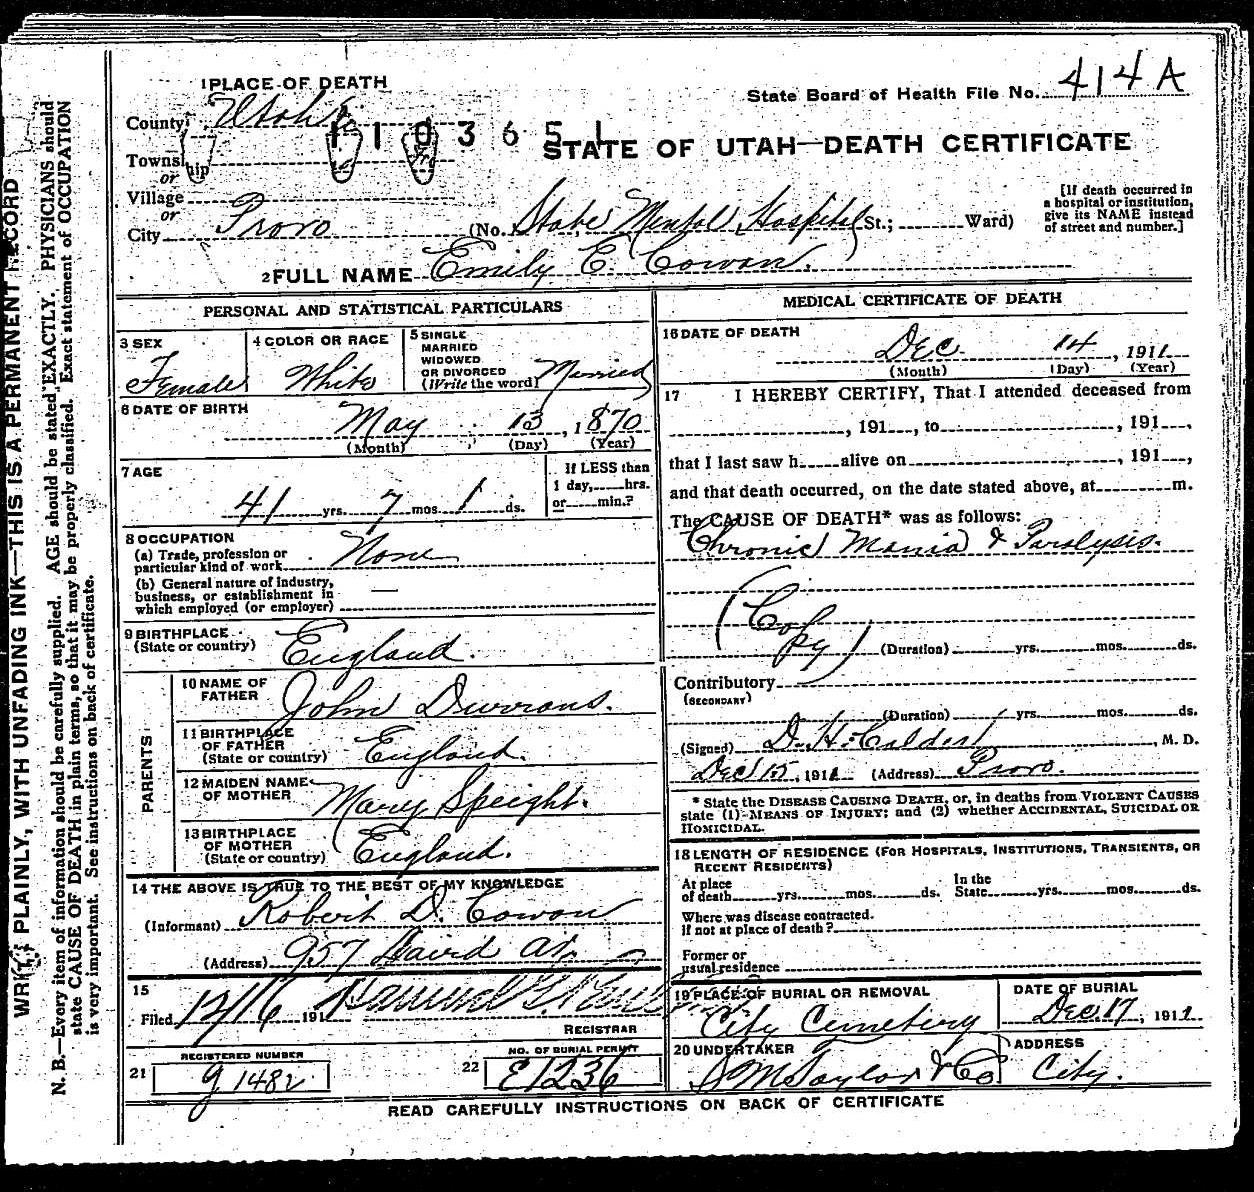 WRITE PLAINLY, WITH UNFADING INK—THIS IS A PERMANENT RECORD
N. B.—Every item of information should be carefully supplied. AGE should be stated EXACTLY. PHYSICIANS should
state CAUSE OF DEATH in plain terms, so that it may be properly classified. Exact statement of OCCUPATION
is very important. See instructions on back of certificate.
1 PLACE OF DEATH
State Board of Health File No. 414 A
County Utah
1103651
STATE OF UTAH—DEATH CERTIFICATE
Township
or
Village
or
City Provo (No. State Mental Hospital St.; Ward)
[If death occurred in
a hospital or institution,
give its NAME instead
of street and number.]
2 FULL NAME Emily E. Cowan.
PERSONAL AND STATISTICAL PARTICULARS
3 SEX
Female
4 COLOR OR RACE
White
5 SINGLE
MARRIED
WIDOWED
OR DIVORCED
(Write the word) Married
6 DATE OF BIRTH
May 13, 1870
(Month) (Day) (Year)
7 AGE
41 yrs. 7 mos. 1 ds.
If LESS than
1 day, hrs.
or min.?
8 OCCUPATION
(a) Trade, profession or
particular kind of work None
(b) General nature of industry,
business, or establishment in
which employed (or employer) —
9 BIRTHPLACE
(State or country) England.
PARENTS
10 NAME OF
FATHER John Durrans.
11 BIRTHPLACE
OF FATHER
(State or country) England.
12 MAIDEN NAME
OF MOTHER Mary Speight.
13 BIRTHPLACE
OF MOTHER
(State or country) England.
14 THE ABOVE IS TRUE TO THE BEST OF MY KNOWLEDGE
(Informant) Robert D. Cowan
(Address) 957 Laird
15
Filed 12/16 191 Samuel G.
REGISTRAR
REGISTERED NUMBER
21 1482
NO. OF BURIAL PERMIT
22 E1236
MEDICAL CERTIFICATE OF DEATH
16 DATE OF DEATH
Dec. 14, 1911
(Month) (Day) (Year)
17 I HEREBY CERTIFY, That I attended deceased from
, 191 , to , 191 ,
that I last saw h alive on , 191 ,
and that death occurred, on the date stated above, at m.
The CAUSE OF DEATH* was as follows:
Chronic Mania & Paralysis.
(Copy)
(Duration) yrs. mos. ds.
Contributory
(SECONDARY)
(Duration) yrs. mos. ds.
(Signed) D. H. Calder, M. D.
Dec 15, 1911 (Address) Provo.
* State the DISEASE CAUSING DEATH, or, in deaths from VIOLENT CAUSES
state (1) MEANS OF INJURY; and (2) whether ACCIDENTAL, SUICIDAL OR
HOMICIDAL.
18 LENGTH OF RESIDENCE (FOR HOSPITALS, INSTITUTIONS, TRANSIENTS, OR
RECENT RESIDENTS)
At place
of death yrs. mos. ds.
In the
State yrs. mos. ds.
Where was disease contracted.
if not at place of death?
Former or
usual residence
19 PLACE OF BURIAL OR REMOVAL
City Cemetery
DATE OF BURIAL
Dec. 17, 1911
20 UNDERTAKER
S M Taylor & Co
ADDRESS
City.
READ CAREFULLY INSTRUCTIONS ON BACK OF CERTIFICATE